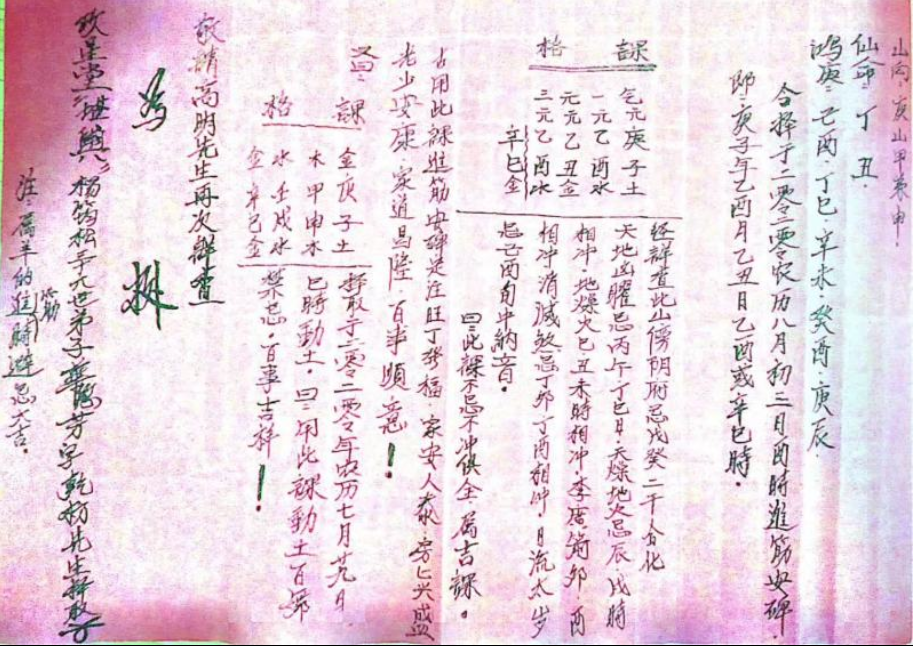 山向：寅山甲兼申！
仙命：丁丑．
鸿庚：己酉．丁巳．辛未．癸酉．庚辰
合择于二零二零农历八月初三日酉时进筋安碑．
即：庚子年乙酉月乙丑日乙酉或辛巳時．
課格
乞元庚子土
一元乙酉水
元元乙丑金
三元乙酉水
辛巳金
经詳查此山傍阴府忌戊癸二干合化
天地凶曜忌丙午丁巳日．天燥地火忌辰戌時
相冲．地燥火巳丑未時相冲．李廣箭卯酉
相冲消滅煞忌丁卯丁酉相冲．日流太岁
忌己酉旬中納音．
曰：此課不忌不冲俱全．属吉課。
占用此課進筋安碑是注旺丁發福．家安人泰．房房兴盛
老少安康．家道昌隆．百事順意！
又曰：課格
金庚子土
木甲申木
水壬戌水
金辛巳金
择取于二零二零年农历七月芄日
巳時動土．曰：用此課動土百無
禁忌．百事吉祥！
敬請高明先生再次詳查
為拟
政星堂堪輿．楊筠松芋九世弟子龍芳字乾枋先生择取
注：属羊的進筋時避忌大吉．